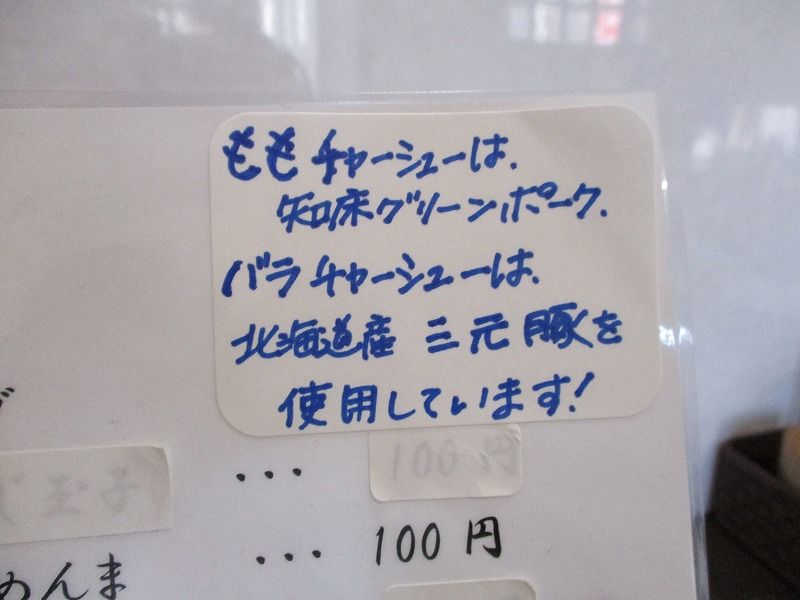 ももチャーシューは、
知床グリーンポーク、
バラチャーシューは、
北海道産 三元豚を
使用しています!
... 100円
玉子
めんま ... 100円